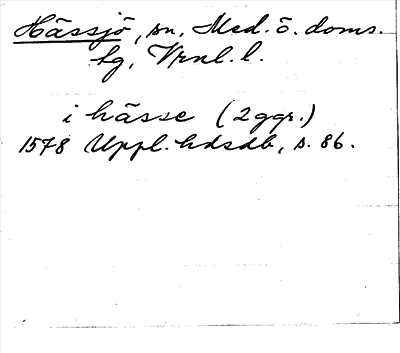 Hässjö, sn, Med. ö. doms.
hg, Vrnl. l.
i hässe (2 ggr.)
1578 Uppl. hdsdb, s. 86.